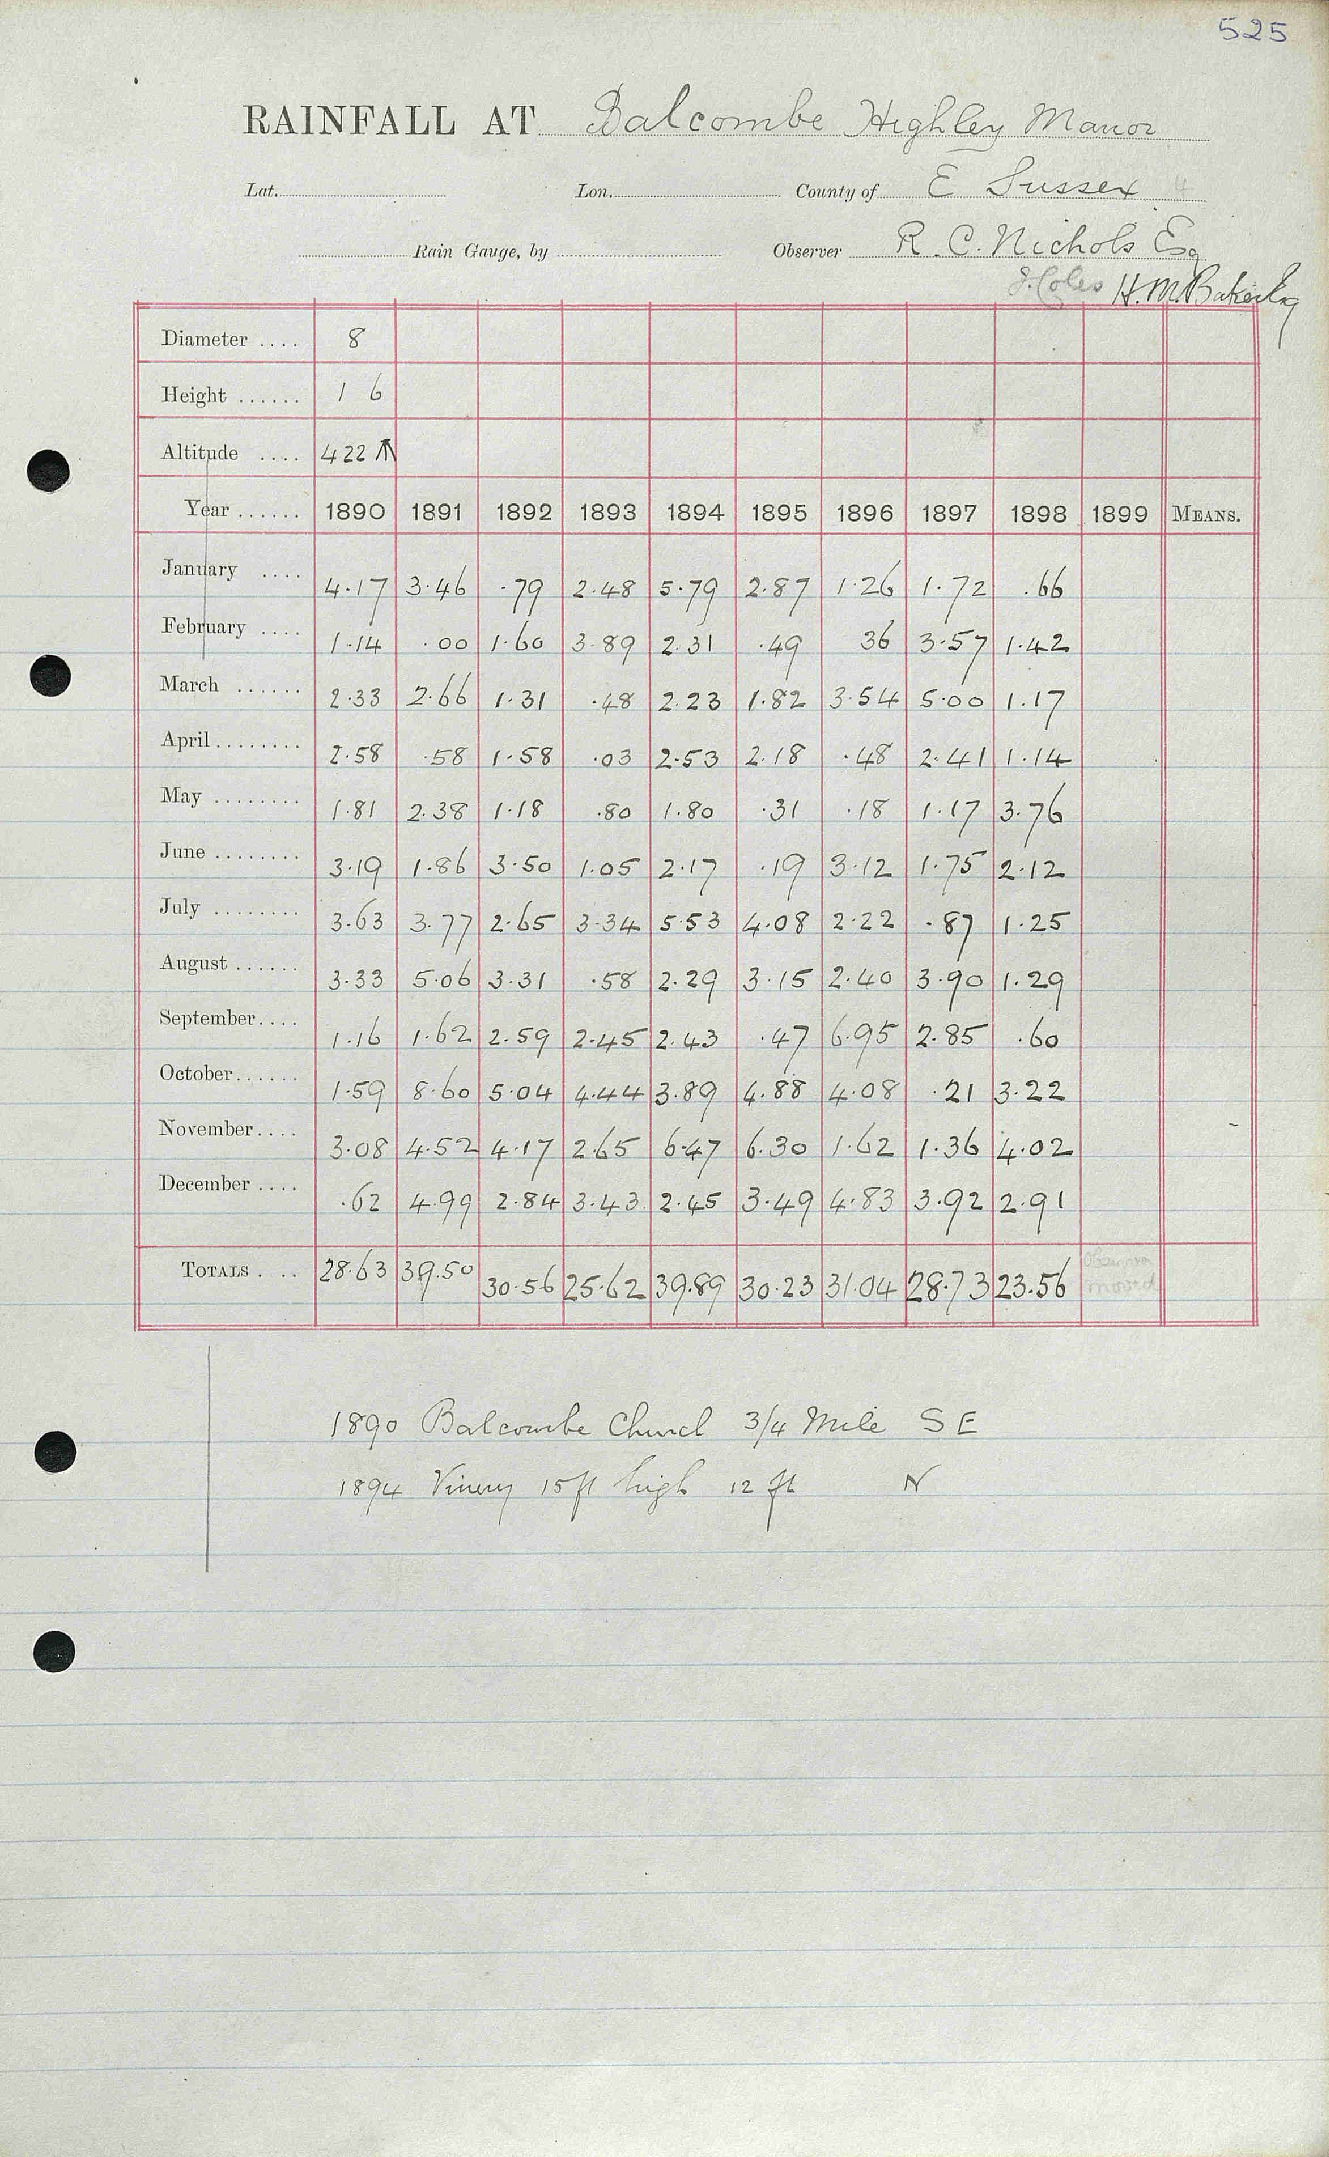 525
RAINFALL AT Balcombe Highley Manor
Lat. Lon. County of E Sussex 4
Rain Gauge, by Observer R. C. Nichols Esq
J. Coles H. M. Baker Esq
Diameter .... 8
Height ...... 1 6
Altitude .... 422 ⚹
Year ...... 1890 1891 1892 1893 1894 1895 1896 1897 1898 1899 MEANS.
January .... 4.17 3.46 .79 2.48 5.79 2.87 1.26 1.72 .66
February .... 1.14 .00 1.60 3.89 2.31 .49 36 3.57 1.42
March ...... 2.33 2.66 1.31 .48 2.23 1.82 3.54 5.00 1.17
April ........ 2.58 .58 1.58 .03 2.53 2.18 .48 2.41 1.14
May ........ 1.81 2.38 1.18 .80 1.80 .31 .18 1.17 3.76
June ........ 3.19 1.86 3.50 1.05 2.17 .19 3.12 1.75 2.12
July ........ 3.63 3.77 2.65 3.34 5.53 4.08 2.22 .87 1.25
August ...... 3.33 5.06 3.31 .58 2.29 3.15 2.40 3.90 1.29
September .... 1.16 1.62 2.59 2.45 2.43 .47 6.95 2.85 .60
October ...... 1.59 8.60 5.04 4.44 3.89 4.88 4.08 .21 3.22
November .... 3.08 4.52 4.17 2.65 6.47 6.30 1.62 1.36 4.02
December .... .62 4.99 2.84 3.43 2.45 3.49 4.83 3.92 2.91
TOTALS . .. 28.63 39.50 30.56 25.62 39.89 30.23 31.04 28.73 23.56 moved
1890 Balcombe Church 3/4 Mile S E
1894 Vinery 15 ft high 12 ft N